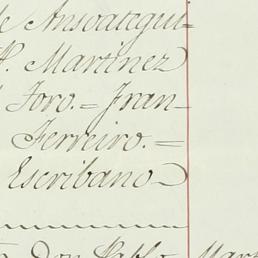 de Ansoategui=
P. Martinez
Toro.= Fran-
Ferreiro.=
Escribano
Don Pablo Mart